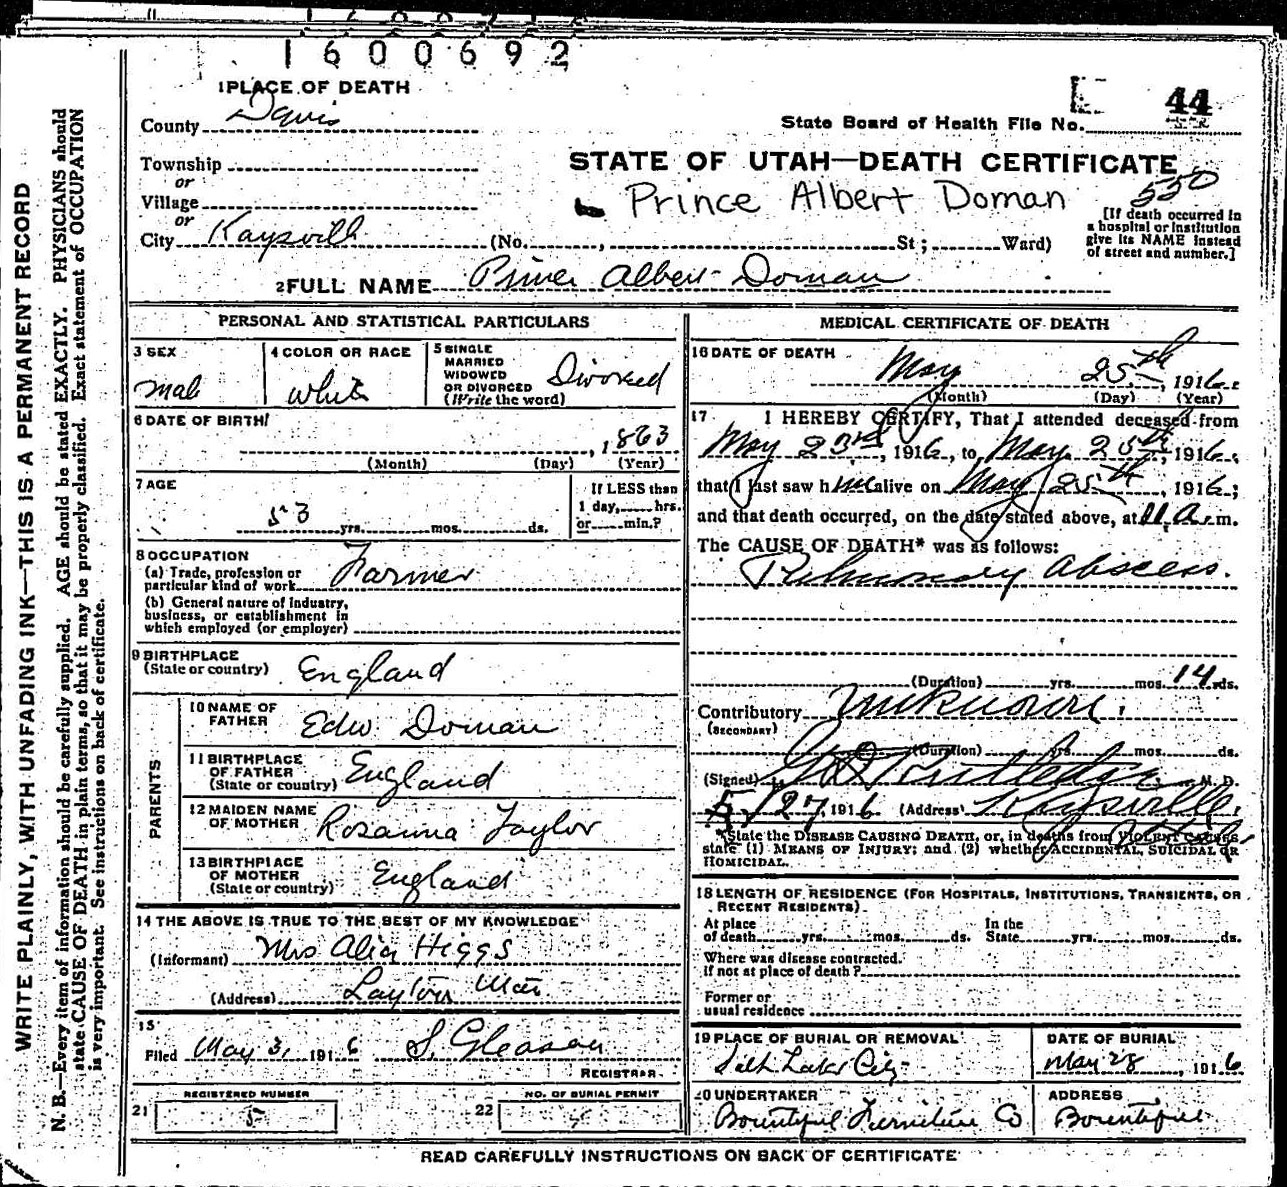 1600692
1 PLACE OF DEATH
County Davis
Township
or
Village
or
City Kaysville (No. , St; Ward)
44
State Board of Health File No.
STATE OF UTAH—DEATH CERTIFICATE
Prince Albert Doman
550
[If death occurred in
a hospital or institution
give its NAME instead
of street and number.]
2 FULL NAME Prince Albert Doman
PERSONAL AND STATISTICAL PARTICULARS
3 SEX
male
4 COLOR OR RACE
white
5 SINGLE
MARRIED
WIDOWED
OR DIVORCED
(Write the word)
Divorced
6 DATE OF BIRTH
, 1863
(Month) (Day) (Year)
7 AGE
53 yrs. mos. ds.
If LESS than
1 day, hrs.
or min.?
8 OCCUPATION
(a) Trade, profession or
particular kind of work Farmer
(b) General nature of industry,
business, or establishment in
which employed (or employer)
9 BIRTHPLACE
(State or country) England
PARENTS
10 NAME OF
FATHER Edw Doman
11 BIRTHPLACE
OF FATHER
(State or country) England
12 MAIDEN NAME
OF MOTHER Rosanna Taylor
13 BIRTHPLACE
OF MOTHER
(State or country) England
14 THE ABOVE IS TRUE TO THE BEST OF MY KNOWLEDGE
(Informant) Mrs Higgs
(Address) Layton
15
Filed May 3, 1916 S. Gleason
REGISTRAR
REGISTERED NUMBER
21 5
NO. OF BURIAL PERMIT
22
MEDICAL CERTIFICATE OF DEATH
16 DATE OF DEATH
May 25th, 1916
(Month) (Day) (Year)
17 I HEREBY CERTIFY, That I attended deceased from
May 23rd, 1916, to May 25th, 1916,
that I last saw him alive on May 25th, 1916;
and that death occurred, on the date stated above, at 11 a.m.
The CAUSE OF DEATH* was as follows:
Pulmonary Abscess.
(Duration) yrs. mos. 14 ds.
Contributory unknown.
(SECONDARY)
(Duration) yrs. mos. ds.
(Signed) Rutledge M. D.
5/27, 1916 (Address) Kaysville,
Utah
*State the DISEASE CAUSING DEATH, or, in deaths from VIOLENT CAUSES
state (1) MEANS OF INJURY; and (2) whether ACCIDENTAL, SUICIDAL OR
HOMICIDAL.
18 LENGTH OF RESIDENCE (FOR HOSPITALS, INSTITUTIONS, TRANSIENTS, OR
RECENT RESIDENTS)
At place
of death yrs. mos. ds.
In the
State yrs. mos. ds.
Where was disease contracted.
if not at place of death?
Former or
usual residence
19 PLACE OF BURIAL OR REMOVAL
Salt Lake City
DATE OF BURIAL
May 28, 1916
20 UNDERTAKER
Bountiful Furniture Co
ADDRESS
Bountiful
READ CAREFULLY INSTRUCTIONS ON BACK OF CERTIFICATE
WRITE PLAINLY, WITH UNFADING INK—THIS IS A PERMANENT RECORD
N. B.—Every item of information should be carefully supplied. AGE should be stated EXACTLY. PHYSICIANS should
state CAUSE OF DEATH in plain terms, so that it may be properly classified. Exact statement of OCCUPATION
is very important. See instructions on back of certificate.